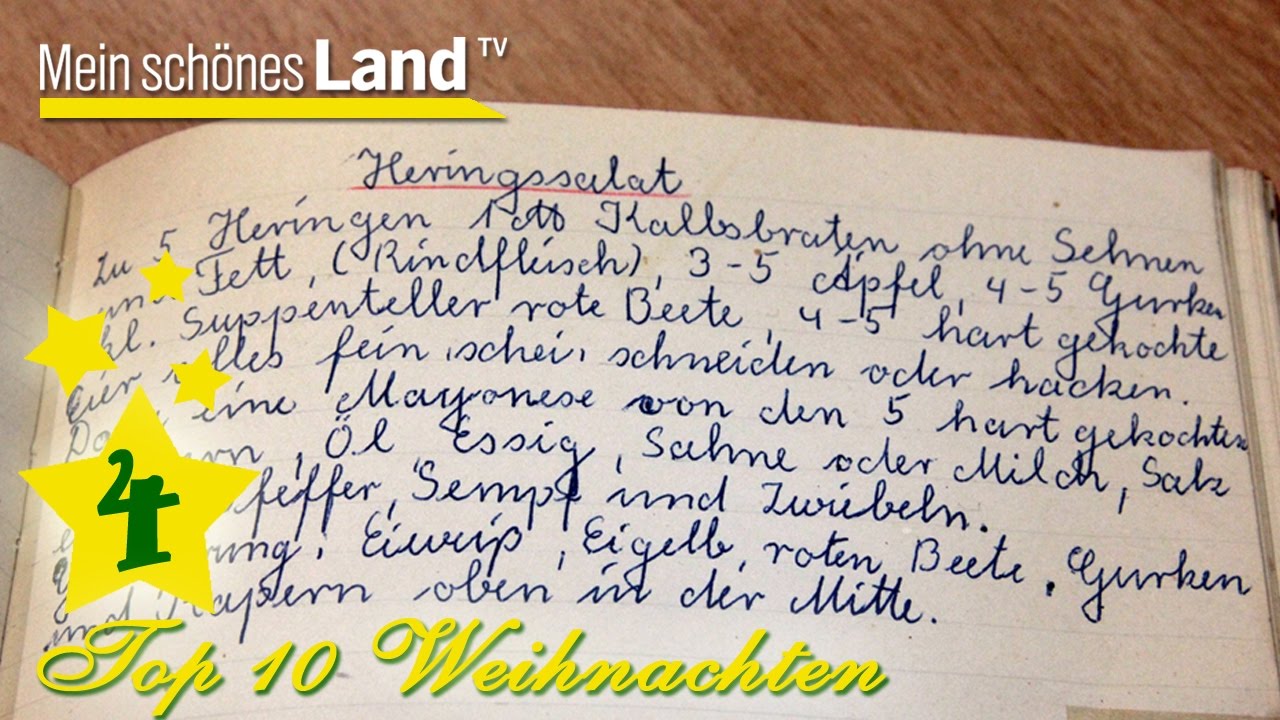 Mein schönes Land TV
Heringssalat
Zu 5 Heringen 1 Kalbsbraten ohne Sehnen
und Fett, (Rindfleisch), 3-5 Äpfel, 4-5 Gurken
kl. Suppenteller rote Beete, 4-5 hart gekochte
Eier alles fein schneiden oder hacken.
eine Mayonese von den 5 hart gekochten
Öl, Essig, Sahne oder Milch, Salz
Pfeffer, Sempf und Zwiebeln.
Eiweiß, Eigelb, roten Beete, Gurken
und Kapern oben in der Mitte.
4
Top 10 Weihnachten